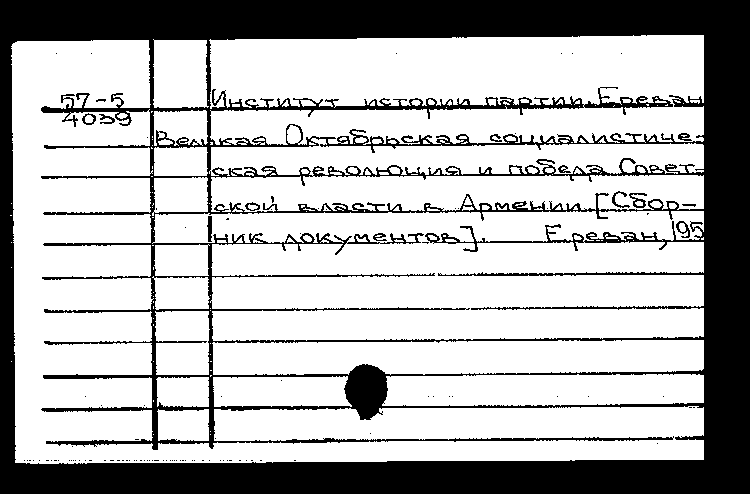 57-5
4039
Институт истории партии. Ереван
Великая Октябрьская социалистиче-
ская революция и победа Совет-
ской власти в Армении. [Сбор-
ник документов]. Ереван, 195